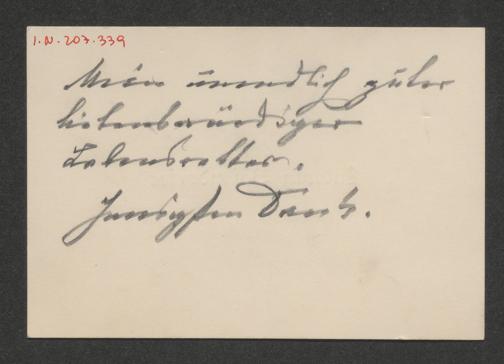 I.N. 207.339
Mein unendlich guter
liebenswürdiger
Lebensretter.
Innigsten Dank.